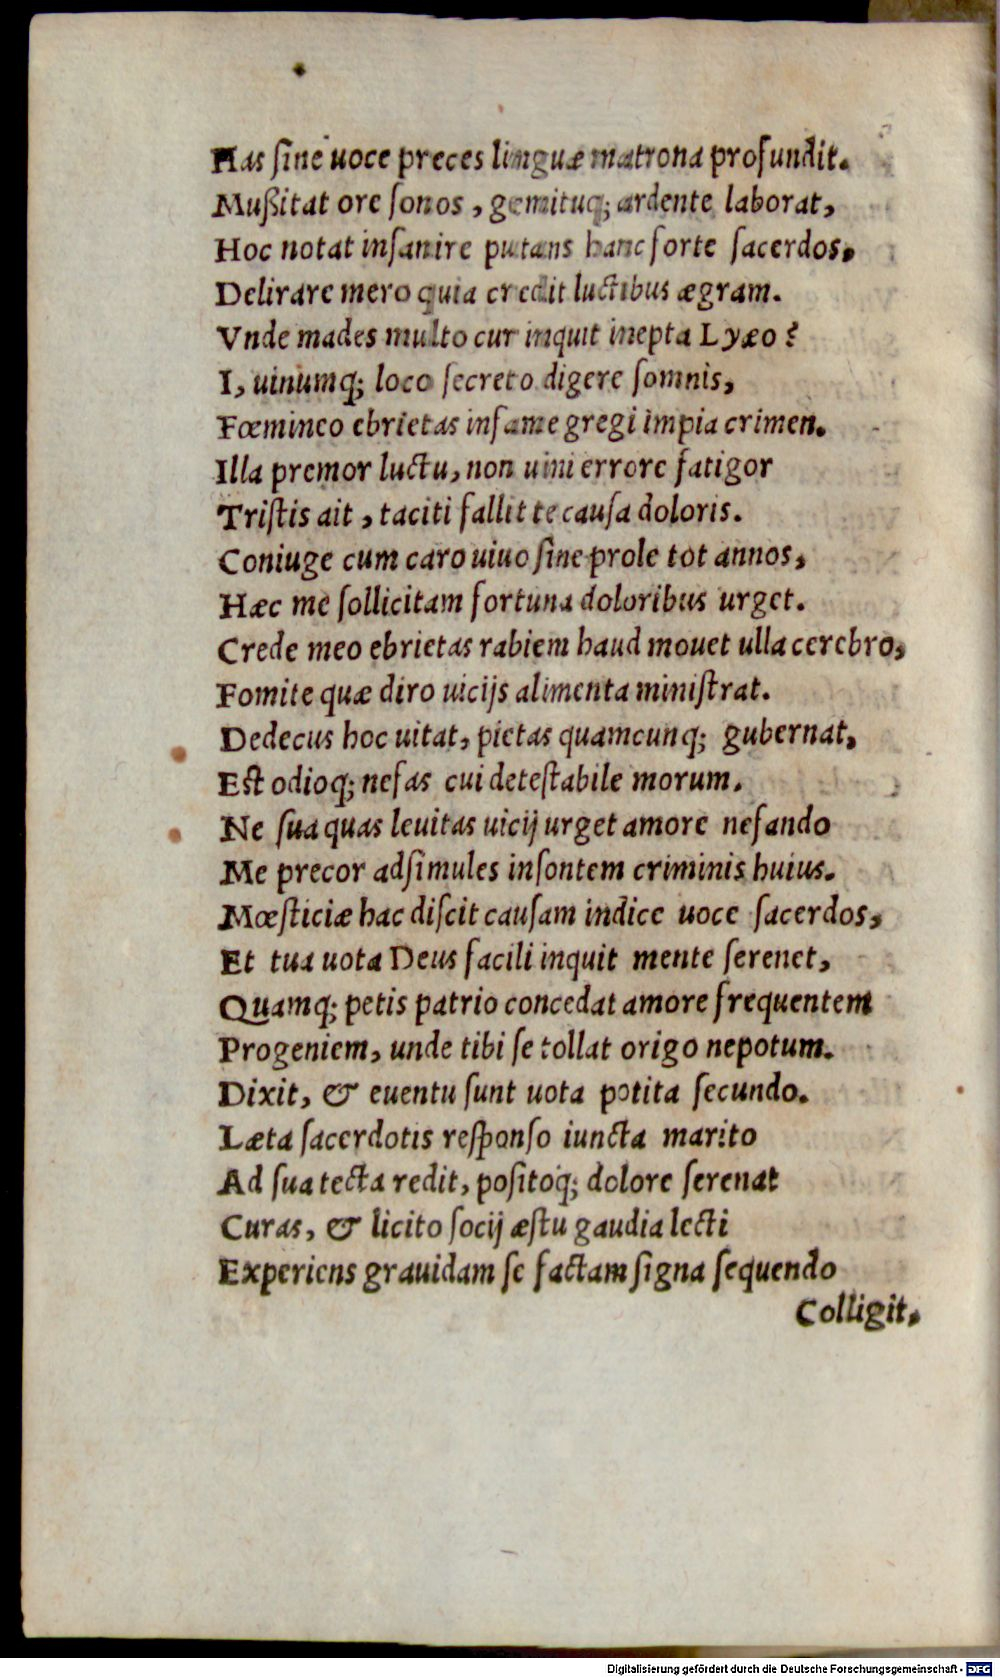 Has ſine uoce preces linguæ matrona profundit.
Mußitat ore ſonos, gemituq; ardente laborat,
Hoc notat inſanire putans hanc forte ſacerdos,
Delirare mero quia credit luctibus ægram.
Vnde mades multo cur inquit inepta Lyæo?
I, uinumq; loco ſecreto digere ſomnis,
Fœmineo ebrietas inſame gregi impia crimen.
Illa premor luctu, non uini errore fatigor
Triſtis ait, taciti fallit te cauſa doloris.
Coniuge cum caro uiuo ſine prole tot annos,
Hæc me ſollicitam fortuna doloribus urget.
Crede meo ebrietas rabiem haud mouet ulla cerebro,
Fomite quæ diro uicijs alimenta miniſtrat.
Dedecus hoc uitat, pietas quamcunq; gubernat,
Eſt odioq; nefas cui deteſtabile morum.
Ne ſua quas leuitas uicij urget amore nefando
Me precor adſimules inſontem criminis huius.
Mœſticiæ hac diſcit cauſam indice uoce ſacerdos,
Et tua uota Deus facili inquit mente ſerenet,
Quamq; petis patrio concedat amore frequentem
Progeniem, unde tibi ſe tollat origo nepotum.
Dixit, & euentu ſunt uota potita ſecundo.
Læta ſacerdotis reſponſo iuncta marito
Ad ſua tecta redit, poſitoq; dolore ſerenat
Curas, & licito ſocij æſtu gaudia lecti
Experiens grauidam ſe factam ſigna ſequendo
Colligit,
Digitalisierung gefördert durch die Deutsche Forschungsgemeinschaft - DFG